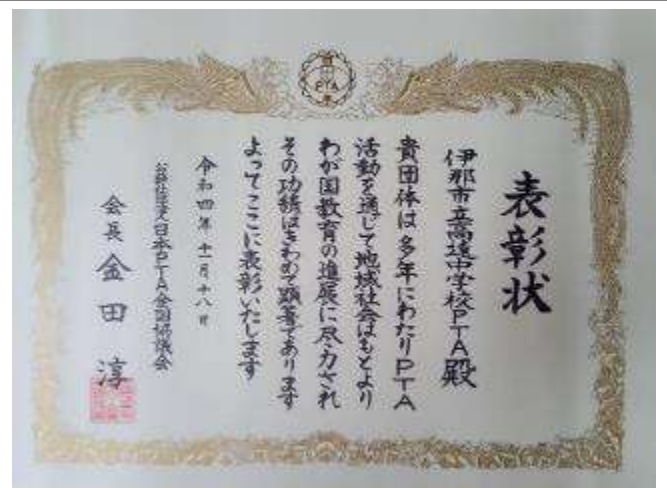 PTA
表彰状
伊那市立高遠中学校PTA殿
貴団体は多年にわたりPTA
活動を通じて地域社会はもとより
わが国教育の進展に尽力され
その功績はきわめて顕著であります
よってここに表彰いたします
令和四年十一月十八日
公益社団法人日本PTA全国協議会
会長 金田淳